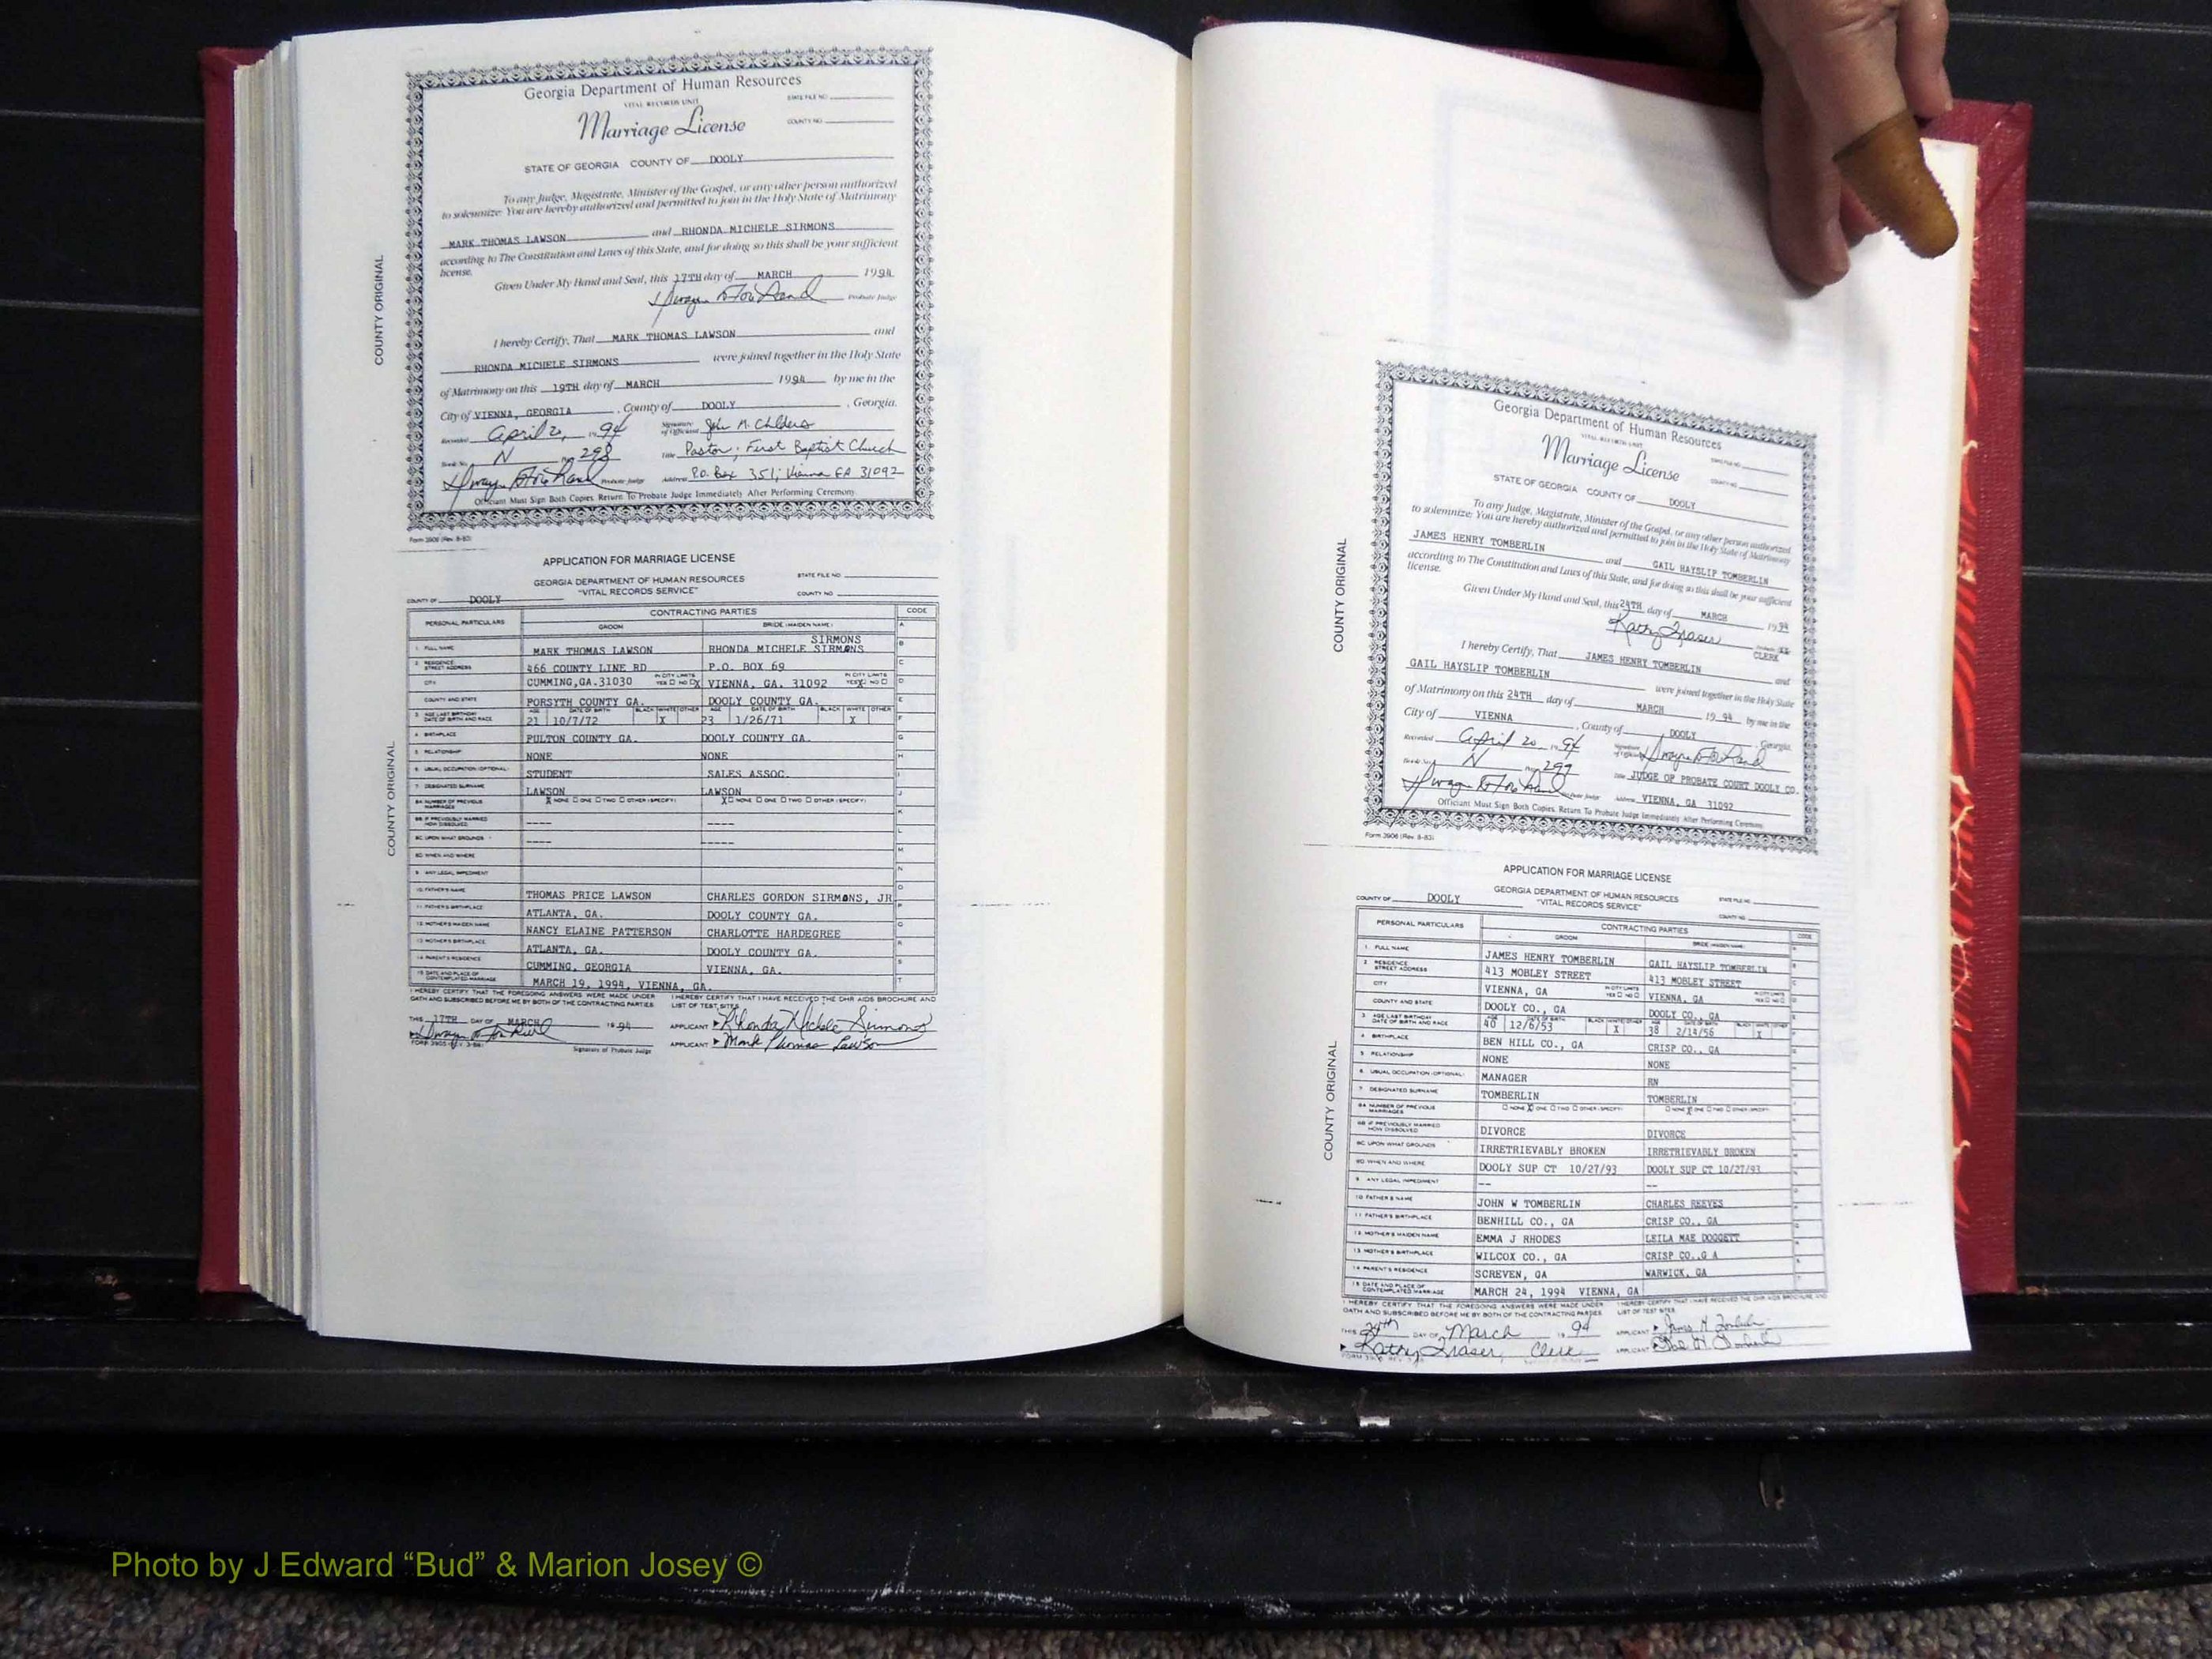 Georgia Department of Human Resources
VITAL RECORDS UNIT
Marriage License
STATE FILE NO.
COUNTY NO.
STATE OF GEORGIA COUNTY OF DOOLY
To any Judge, Magistrate, Minister of the Gospel, or any other person authorized
to solemnize: You are hereby authorized and permitted to join in the Holy State of Matrimony
MARK THOMAS LAWSON and RHONDA MICHELE SIRMONS
according to The Constitution and Laws of this State, and for doing so this shall be your sufficient
license.
Given Under My Hand and Seal, this 17TH day of MARCH 1994
Probate Judge
I hereby Certify, That MARK THOMAS LAWSON and
RHONDA MICHELE SIRMONS were joined together in the Holy State
of Matrimony on this 19TH day of MARCH 1994 by me in the
City of VIENNA, GEORGIA, County of DOOLY, Georgia.
Recorded April 20, 1994 Signature of Officiant John M. Childers
Book No. N Page 298 Title Pastor; First Baptist Church
Probate Judge Address P.O. Box 351; Vienna GA 31092
Officiant Must Sign Both Copies. Return To Probate Judge Immediately After Performing Ceremony.
Form 3906 (Rev. 8-83)
COUNTY ORIGINAL
APPLICATION FOR MARRIAGE LICENSE
GEORGIA DEPARTMENT OF HUMAN RESOURCES STATE FILE NO.
"VITAL RECORDS SERVICE" COUNTY NO.
COUNTY OF DOOLY
PERSONAL PARTICULARS CONTRACTING PARTIES CODE
GROOM BRIDE (MAIDEN NAME)
SIRMONS
1. FULL NAME MARK THOMAS LAWSON RHONDA MICHELE SIRMONS
2. RESIDENCE STREET ADDRESS 466 COUNTY LINE RD P.O. BOX 69
CITY CUMMING,GA.31030 IN CITY LIMITS YES NO X VIENNA, GA. 31092 IN CITY LIMITS YES X NO
COUNTY AND STATE FORSYTH COUNTY GA. DOOLY COUNTY GA.
3. AGE LAST BIRTHDAY DATE OF BIRTH AND RACE 21 10/7/72 X 23 1/26/71 X
4. BIRTHPLACE FULTON COUNTY GA. DOOLY COUNTY GA.
5. RELATIONSHIP NONE NONE
6. USUAL OCCUPATION (OPTIONAL) STUDENT SALES ASSOC.
7. DESIGNATED SURNAME LAWSON LAWSON
8A. NUMBER OF PREVIOUS MARRIAGES X NONE ONE TWO OTHER (SPECIFY) X NONE ONE TWO OTHER (SPECIFY)
8B. IF PREVIOUSLY MARRIED HOW DISSOLVED ---- ----
8C. UPON WHAT GROUNDS ---- -----
8D. WHEN AND WHERE
9. ANY LEGAL IMPEDIMENT
10. FATHER'S NAME THOMAS PRICE LAWSON CHARLES GORDON SIRMONS, JR
11. FATHER'S BIRTHPLACE ATLANTA, GA. DOOLY COUNTY GA.
12. MOTHER'S MAIDEN NAME NANCY ELAINE PATTERSON CHARLOTTE HARDEGREE
13. MOTHER'S BIRTHPLACE ATLANTA, GA. DOOLY COUNTY GA.
14. PARENT'S RESIDENCE CUMMING, GEORGIA VIENNA, GA.
15. DATE AND PLACE OF CONTEMPLATED MARRIAGE MARCH 19, 1994, VIENNA, GA.
I HEREBY CERTIFY THAT THE FOREGOING ANSWERS WERE MADE UNDER I HEREBY CERTIFY THAT I HAVE RECEIVED THE DHR AIDS BROCHURE AND
OATH AND SUBSCRIBED BEFORE ME BY BOTH OF THE CONTRACTING PARTIES LIST OF TEST SITES
THIS 17TH DAY OF MARCH 1994 APPLICANT Rhonda Michele Sirmons
APPLICANT Mark Thomas Lawson
Signature of Probate Judge
COUNTY ORIGINAL
Georgia Department of Human Resources
VITAL RECORDS UNIT
Marriage License
STATE FILE NO.
COUNTY NO.
STATE OF GEORGIA COUNTY OF DOOLY
To any Judge, Magistrate, Minister of the Gospel, or any other person authorized
to solemnize: You are hereby authorized and permitted to join in the Holy State of Matrimony
JAMES HENRY TOMBERLIN and GAIL HAYSLIP TOMBERLIN
according to The Constitution and Laws of this State, and for doing so this shall be your sufficient
license.
Given Under My Hand and Seal, this 24TH day of MARCH 1994
Kathy Fraser
CLERK
I hereby Certify, That JAMES HENRY TOMBERLIN and
GAIL HAYSLIP TOMBERLIN were joined together in the Holy State
of Matrimony on this 24TH day of MARCH 1994 by me in the
City of VIENNA, County of DOOLY Georgia.
Recorded April 20 1994 Signature of Officiant
Book No. N Page 299 Title JUDGE OF PROBATE COURT DOOLY CO.
Probate Judge Address VIENNA, GA 31092
Officiant Must Sign Both Copies. Return To Probate Judge Immediately After Performing Ceremony.
Form 3906 (Rev. 8-83)
COUNTY ORIGINAL
APPLICATION FOR MARRIAGE LICENSE
GEORGIA DEPARTMENT OF HUMAN RESOURCES STATE FILE NO.
COUNTY OF DOOLY "VITAL RECORDS SERVICE" COUNTY NO.
PERSONAL PARTICULARS CONTRACTING PARTIES CODE
GROOM BRIDE (MAIDEN NAME)
1. FULL NAME JAMES HENRY TOMBERLIN GAIL HAYSLIP TOMBERLIN
2. RESIDENCE STREET ADDRESS 413 MOBLEY STREET 413 MOBLEY STREET
CITY VIENNA, GA VIENNA, GA
COUNTY AND STATE DOOLY CO., GA DOOLY CO., GA
3. AGE LAST BIRTHDAY DATE OF BIRTH AND RACE 40 12/6/53 X 38 2/14/56 X
4. BIRTHPLACE BEN HILL CO., GA CRISP CO., GA
5. RELATIONSHIP NONE NONE
6. USUAL OCCUPATION (OPTIONAL) MANAGER RN
7. DESIGNATED SURNAME TOMBERLIN TOMBERLIN
8A. NUMBER OF PREVIOUS MARRIAGES NONE X ONE TWO OTHER (SPECIFY) NONE X ONE TWO OTHER (SPECIFY)
8B. IF PREVIOUSLY MARRIED HOW DISSOLVED DIVORCE DIVORCE
8C. UPON WHAT GROUNDS IRRETRIEVABLY BROKEN IRRETRIEVABLY BROKEN
8D. WHEN AND WHERE DOOLY SUP CT 10/27/93 DOOLY SUP CT 10/27/93
9. ANY LEGAL IMPEDIMENT -- --
10. FATHER'S NAME JOHN W TOMBERLIN CHARLES REEVES
11. FATHER'S BIRTHPLACE BENHILL CO., GA CRISP CO., GA
12. MOTHER'S MAIDEN NAME EMMA J RHODES LEILA MAE DOGGETT
13. MOTHER'S BIRTHPLACE WILCOX CO., GA CRISP CO.,G A
14. PARENT'S RESIDENCE SCREVEN, GA WARWICK, GA
15. DATE AND PLACE OF CONTEMPLATED MARRIAGE MARCH 24, 1994 VIENNA, GA
I HEREBY CERTIFY THAT THE FOREGOING ANSWERS WERE MADE UNDER I HEREBY CERTIFY THAT I HAVE RECEIVED THE DHR AIDS BROCHURE AND
OATH AND SUBSCRIBED BEFORE ME BY BOTH OF THE CONTRACTING PARTIES LIST OF TEST SITES
THIS 24th DAY OF March 1994 APPLICANT
Kathy Fraser, Clerk APPLICANT
COUNTY ORIGINAL
Photo by J Edward “Bud” & Marion Josey ©